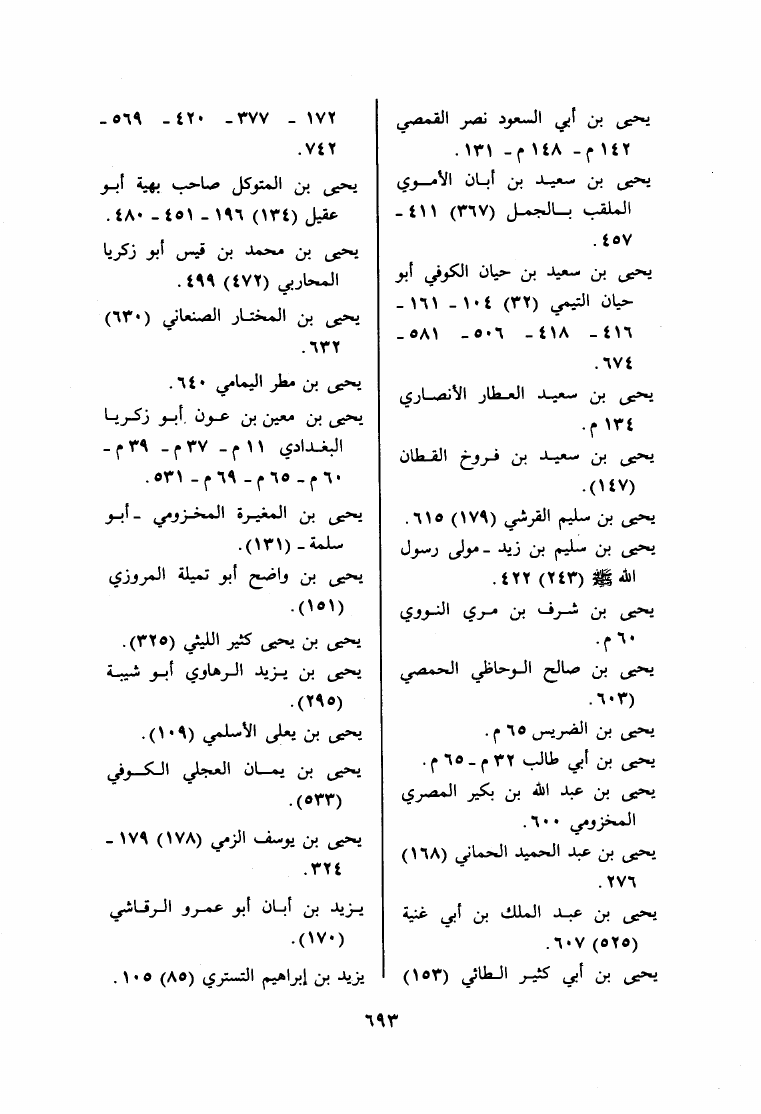 يحيى بن أبي السعود نصر القمصي
١٤٢ م - ١٤٨ م - ١٣١.
يحيى بن سعيد بن أبان الأموي
الملقب بالجمل (٣٦٧) ٤١١ -
٤٥٧.
يحيى بن سعيد بن حيان الكوفي أبو
حيان التيمي (٣٢) ١٠٤ - ١٦١ -
٤١٦ - ٤١٨ - ٥٠٦ - ٥٨١ -
٦٧٤.
يحيى بن سعيد العطار الأنصاري
١٣٤ م.
يحيى بن سعيد بن فروخ القطان
(١٤٧).
يحيى بن سليم القرشي (١٧٩) ٦١٥.
يحيى بن سليم بن زيد - مولى رسول
الله ﷺ (٢٤٣) ٤٢٢.
يحيى بن شرف بن مري النووي
٦٠ م.
يحيى بن صالح الوحاظي الحمصي
(٦٠٣).
يحيى بن الضريس ٦٥ م.
يحيى بن أبي طالب ٣٢ م - ٦٥ م.
يحيى بن عبد الله بن بكير المصري
المخزومي ٦٠٠.
يحيى بن عبد الحميد الحماني (١٦٨)
٢٧٦.
يحيى بن عبد الملك بن أبي غنية
(٥٢٥) ٦٠٧.
يحيى بن أبي كثير الطائي (١٥٣)
١٧٢ - ٣٧٧ - ٤٢٠ - ٥٦٩ -
٧٤٢.
يحيى بن المتوكل صاحب بهية أبو
عقيل (١٣٤) ١٩٦ - ٤٥١ - ٤٨٠.
يحيى بن محمد بن قيس أبو زكريا
المحاربي (٤٧٢) ٤٩٩.
يحيى بن المختار الصنعاني (٦٣٠)
٦٣٢.
يحيى بن مطر اليمامي ٦٤٠.
يحيى بن معين بن عون أبو زكريا
البغدادي ١١ م - ٣٧ م - ٣٩ م -
٦٠ م - ٦٥ م - ٦٩ م - ٥٣١.
يحيى بن المغيرة المخزومي - أبو
سلمة - (١٣١).
يحيى بن واضح أبو تميلة المروزي
(١٥١).
يحيى بن يحيى كثير الليثي (٣٢٥).
يحيى بن يزيد الرهاوي أبو شيبة
(٢٩٥).
يحيى بن يعلى الأسلمي (١٠٩).
يحيى بن يمان العجلي الكوفي
(٥٣٣).
يحيى بن يوسف الزمي (١٧٨) ١٧٩ -
٣٢٤.
يزيد بن أبان أبو عمرو الرقاشي
(١٧٠).
يزيد بن إبراهيم التستري (٨٥) ١٠٥.
٦٩٣